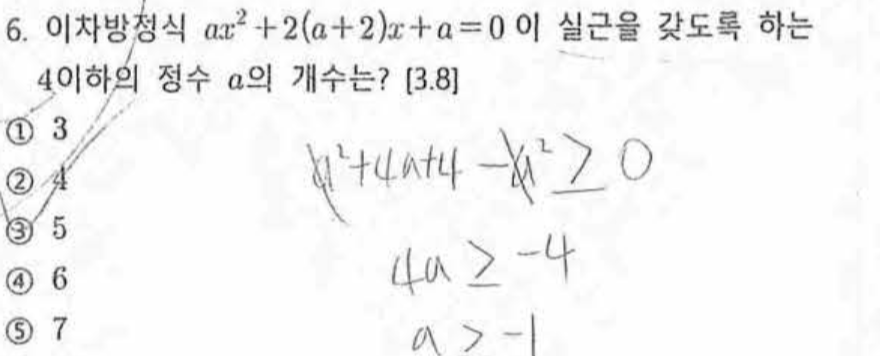 6. 이차방정식 ax²+2(a+2)x+a=0 이 실근을 갖도록 하는
4이하의 정수 a의 개수는? [3.8]
① 3
② 4
③ 5
④ 6
⑤ 7
a²+4a+4-a² ≥ 0
4a ≥ -4
a > -1